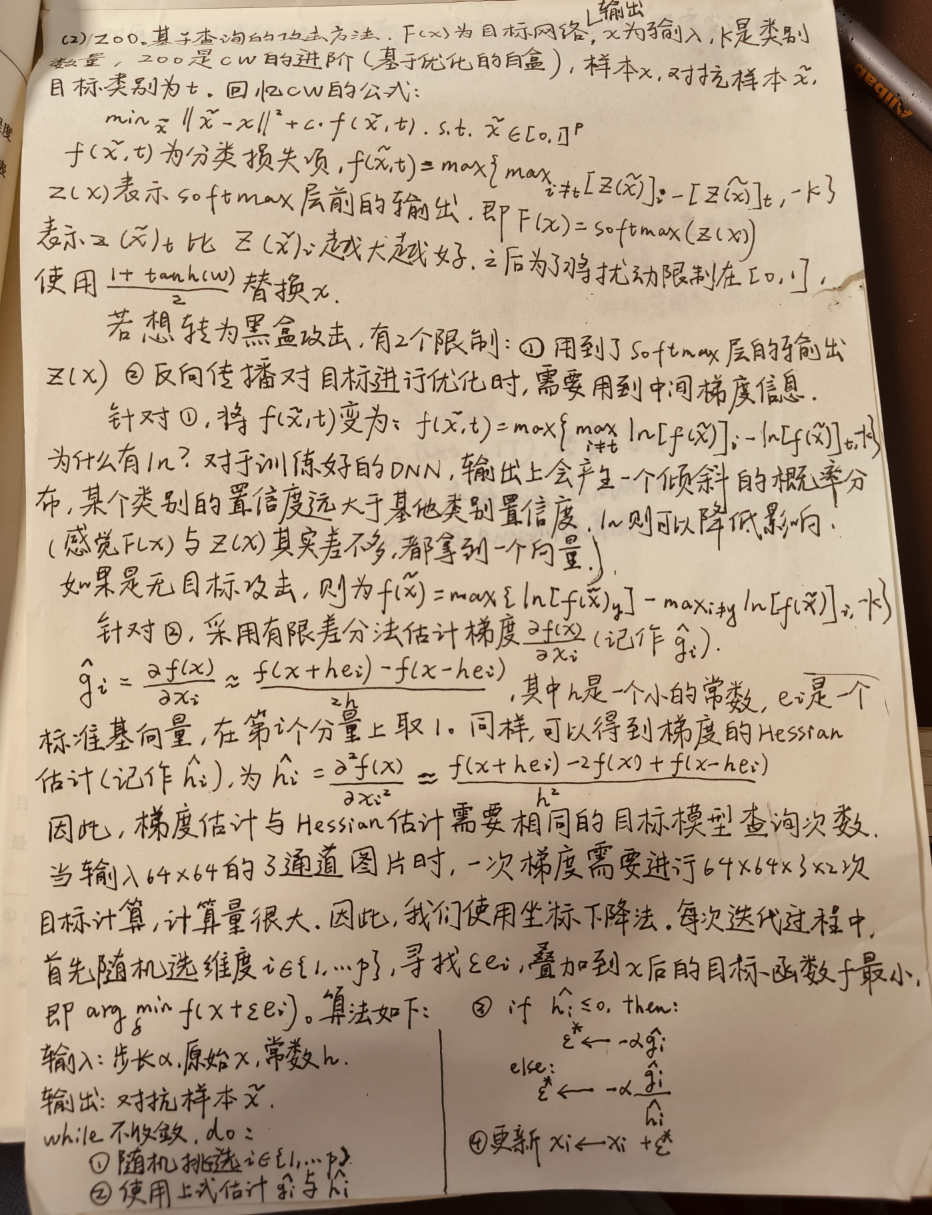 (2) ZOO。基于查询的攻击方法. F(x)为目标网络,输出 x为输入, K是类别
数量, ZOO是CW的进阶(基于优化的白盒), 样本x, 对抗样本x̃,
目标类别为t. 回忆CW的公式:
min_x̃ ||x̃-x||²+c·f(x̃,t). s.t. x̃∈[0,1]^p
f(x̃,t)为分类损失项, f(x̃,t)=max{max_{i≠t}[Z(x̃)]_i-[Z(x̃)]_t, -k}
Z(x)表示softmax层前的输出. 即F(x)=softmax(Z(x))
表示Z(x̃)_t比Z(x̃)_i越大越好. 之后为了将扰动限制在[0,1],
使用 (1+tanh(w))/2 替换x.
若想转为黑盒攻击, 有2个限制: ①用到了softmax层的输出
Z(x) ②反向传播对目标进行优化时, 需要用到中间梯度信息.
针对①, 将f(x̃,t)变为: f(x̃,t)=max{max_{i≠t} ln[f(x̃)]_i-ln[f(x̃)]_t,-k}
为什么有ln? 对于训练好的DNN, 输出上会产生一个倾斜的概率分
布, 某个类别的置信度远大于其他类别置信度. ln则可以降低影响.
(感觉F(x)与Z(x)其实差不多, 都拿到一个向量.)
如果是无目标攻击, 则为f(x̃)=max{ln[f(x̃)_y]-max_{i≠y} ln[f(x̃)]_i,-k}
针对②, 采用有限差分法估计梯度 ∂f(x)/∂x_i (记作ĝ_i).
ĝ_i = ∂f(x)/∂x_i ≈ (f(x+he_i)-f(x-he_i))/2h ,其中h是一个小的常数, e_i是一个
标准基向量, 在第i个分量上取1。同样, 可以得到梯度的Hessian
估计(记作ĥ_i), 为ĥ_i = ∂²f(x)/∂x_i² ≈ (f(x+he_i)-2f(x)+f(x-he_i))/h²
因此, 梯度估计与Hessian估计需要相同的目标模型查询次数.
当输入64×64的3通道图片时, 一次梯度需要进行64×64×3×2次
目标计算, 计算量很大. 因此, 我们使用坐标下降法. 每次迭代过程中,
首先随机选维度i∈{1,...p}, 寻找εe_i, 叠加到x后的目标函数f最小,
即 arg min_δ f(x+εe_i)。算法如下:
输入: 步长α, 原始x, 常数h.
输出: 对抗样本x̃.
while 不收敛, do:
①随机挑选i∈{1,...p}
②使用上式估计ĝ_i与ĥ_i
③ if ĥ_i≤0, then:
ε*← -αĝ_i
else:
ε*← -α ĝ_i/ĥ_i
④更新 x_i←x_i+ε*